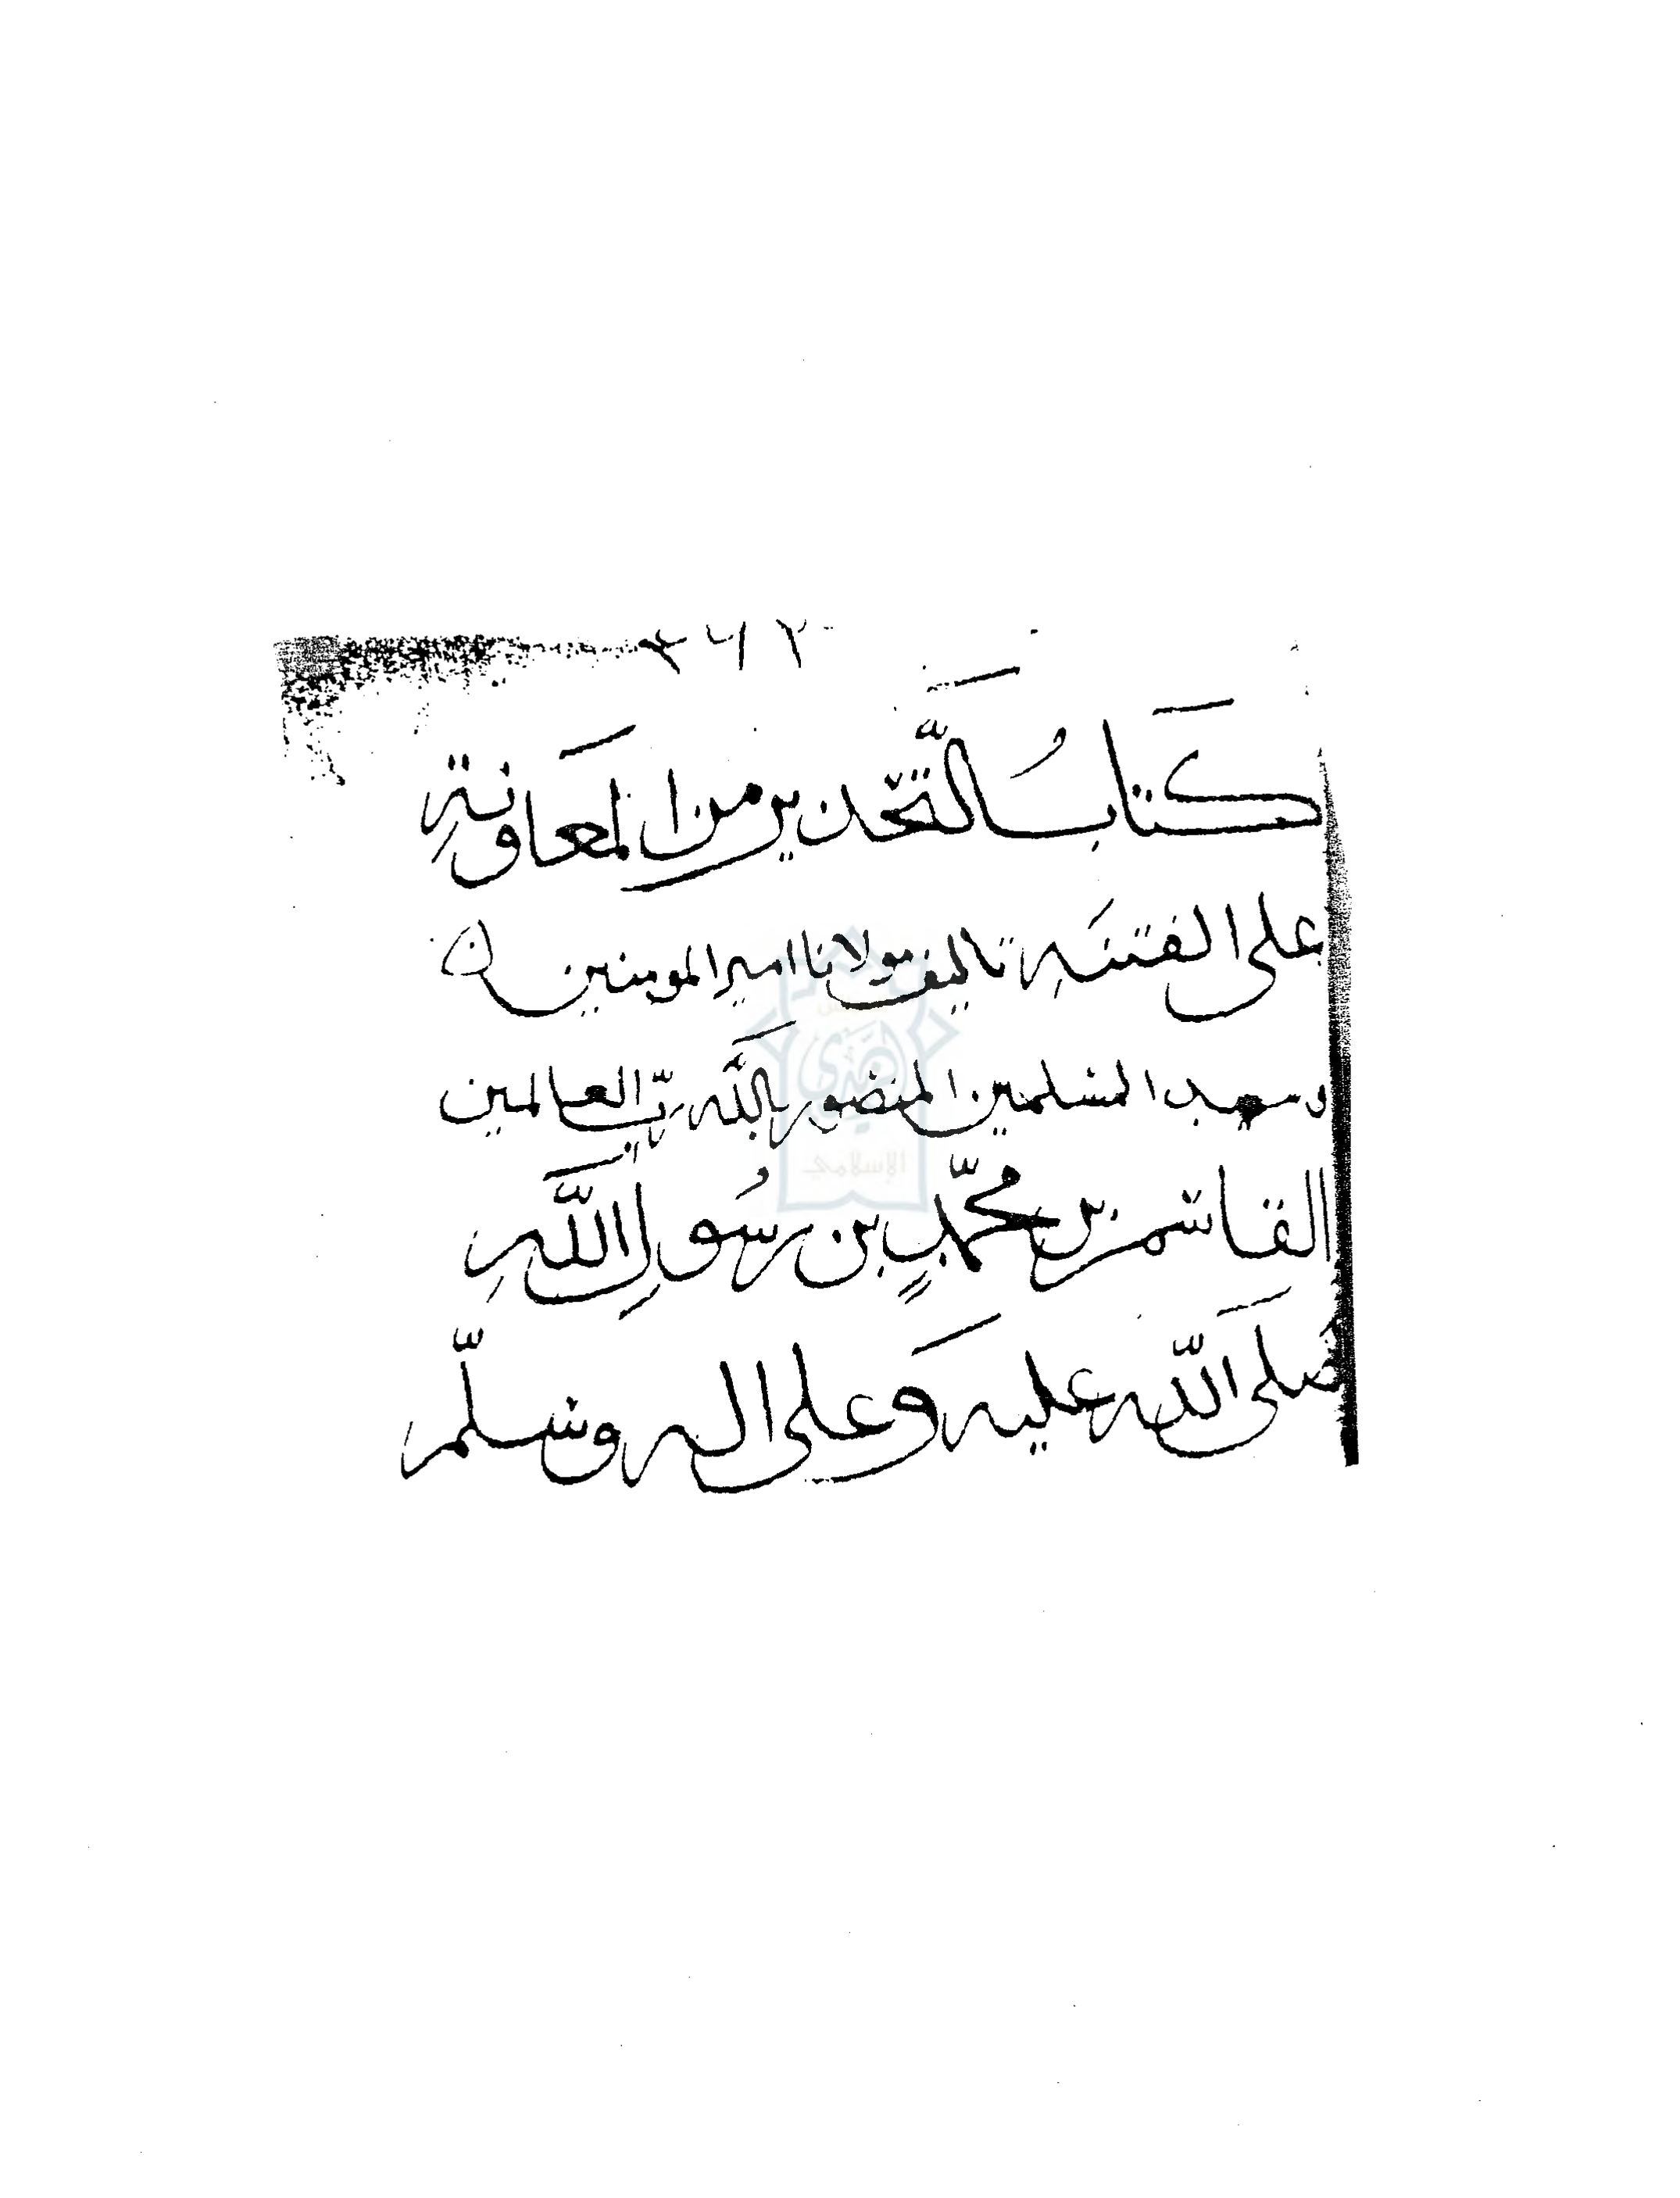 كتابُ التَّحذير من المعاونةِ
على الفتنَةِ تاليف مولانا امير المومنين
وسيد المسلمين المنصور باللَّه ربّ العالمين
القاسم بن محمّدٍ بن رسُولِ اللَّهِ
صلى اللّه عليه وَعلى اله وسلّم